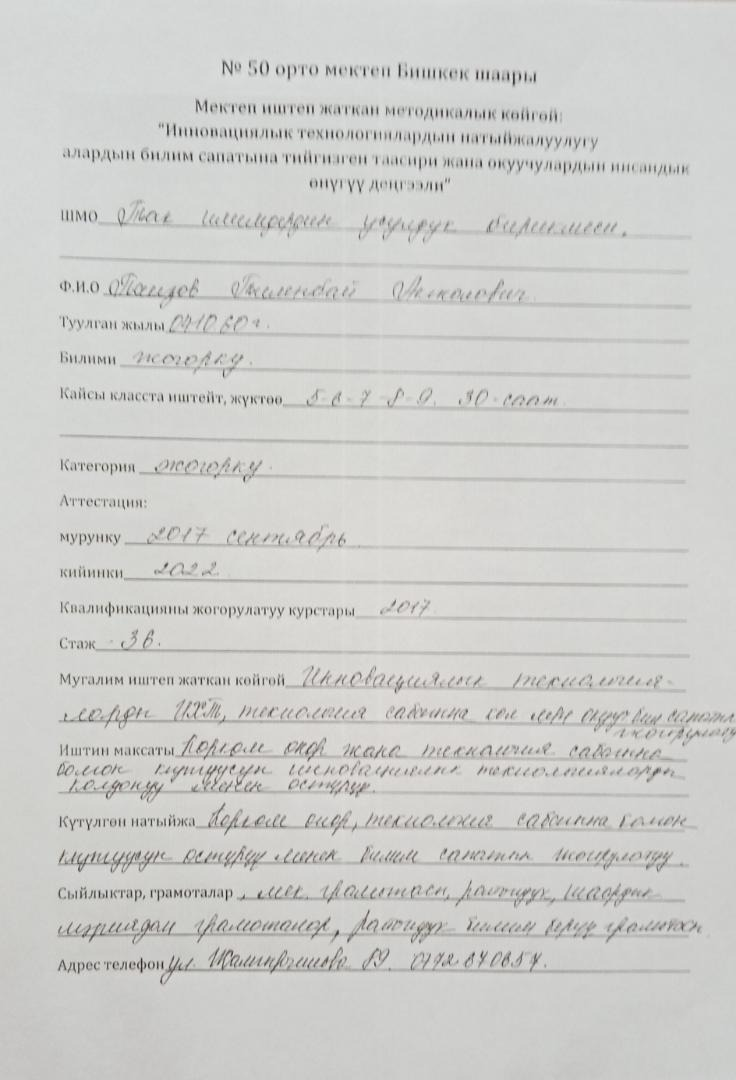 № 50 орто мектеп Бишкек шаары
Мектеп иштеп жаткан методикалык көйгөй:
"Инновациялык технологиялардын натыйжалуулугу
алардын билим сапатына тийгизген таасири жана окуучулардын инсандык
өнүгүү деңгээли"
ШМО Так илимдердин усулдук бирикмеси.
Ф.И.О Тыленбай
Туулган жылы 04.10.60 г.
Билими жогорку.
Кайсы класста иштейт, жүктөө 5-6-7-8-9. 30-саат.
Категория жогорку.
Аттестация:
мурунку 2017 сентябрь
кийинки 2022
Квалификацияны жогорулатуу курстары 2017.
Стаж - 36.
Мугалим иштеп жаткан көйгөй Инновациялык технология-
ларды ИКТ, технология сабагына сапатын
жогорулатуу
Иштин максаты Көркөм өнөр жана технология сабагына
болгон кызыгуусун инновациялык технологияларды
колдонуу менен өстүрүү.
Күтүлгөн натыйжа Көркөм өнөр, технология сабагына болгон
кызыгуусун өстүрүү менен билим сапатын жогорулатуу.
Сыйлыктар, грамоталар , мек. грамотасы, райондук, шаардык
мэриядан грамоталар, райондук билим берүү грамотасы
Адрес телефон ул. 89. 0772 670657.